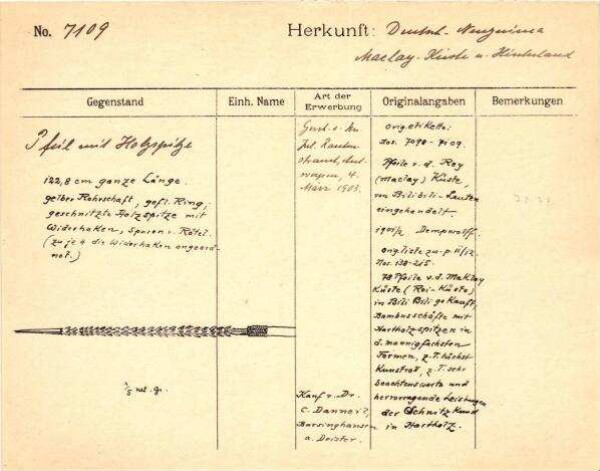 No. 7109
Herkunft: Deutsch-Neuguinea
Maclay-Küste u. Hinterland
Gegenstand
Einh. Name
Art der Erwerbung
Originalangaben
Bemerkungen
Pfeil mit Holzspitze
122,8 cm ganze Länge.
gelber Rohrschaft, gefl. Ring,
geschnitzte Holzspitze mit
Widerhaken, Spuren v. Rötel.
(zu je 4 die Widerhaken angeord-
net.)
1/5 nat. gr.
Jul. Rauten-
strauch, Ant-
werpen, 4.
März 1903.
Kauf v. Dr.
C. Danneil,
Barsinghausen
a. Deister.
orig. etikette:
Nos. 7098-7109.
Pfeile v. d. Rey
(Maclay) Küste,
von Bilibili-Leuten
eingehandelt.
Nos. 138-215.
78 Pfeile v. d. Maklay
Küste (Rai-Küste)
in Bili Bili gekauft.
Bambusschäfte mit
Hartholzspitzen in
d. mannigfachsten
Formen, z. T. höchst
kunstvoll, z. T. sehr
beachtenswerte und
hervorragende Leistungen
der Schnitzkunst
in Hartholz.